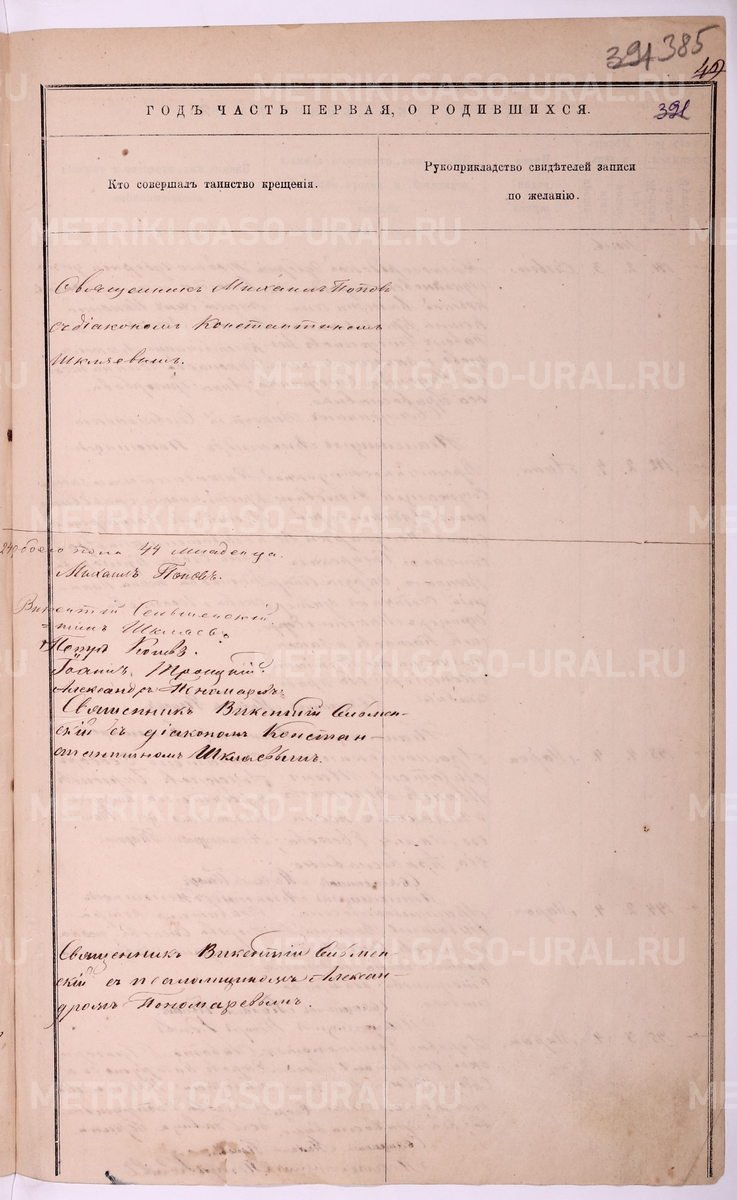 394 385
42
391
ГОДЪ ЧАСТЬ ПЕРВАЯ, О РОДИВШИХСЯ.
Кто совершалъ таинство крещенія.
Рукоприкладство свидѣтелей записи
по желанію.
Священникъ Михаилъ Поповъ
съ діакономъ Константиномъ
Шкляевымъ.
обоего пола 44 младенца.
Михаилъ Поповъ.
Викентій Сельменскій
Шкляевъ
Поповъ.
Іоаннъ Троицкій.
Александръ Пономаревъ.
Священникъ Викентій Сельмен-
скій съ діакономъ Констан-
тиномъ Шкляевымъ.
Священникъ Викентій Сельмен-
скій съ псаломщикомъ Алексан-
дромъ Пономаревымъ.
METRIKI.GASO-URAL.RU